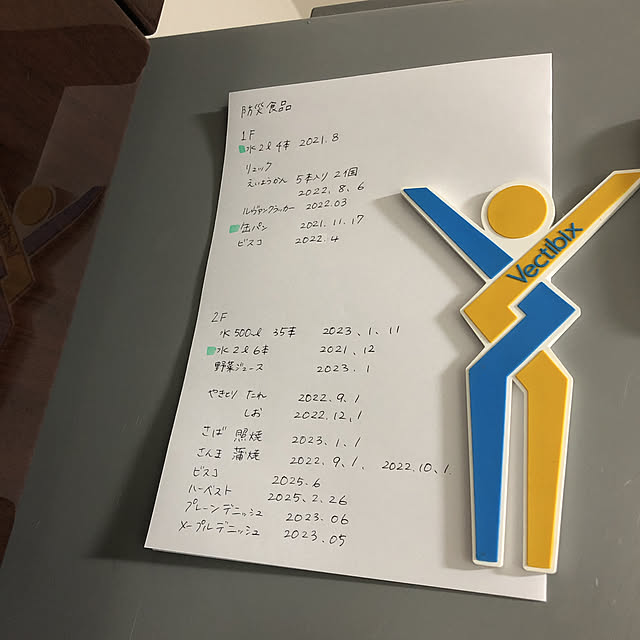 防災食品
1F
水2ℓ 4本 2021.8
リュック
えいようかん 5本入り 2個
2022.8.6
ルヴァンクラッカー 2022.03
缶パン 2021.11.17
ビスコ 2022.4
2F
水500ml 35本 2023.1.11
水2ℓ 6本 2021.12
野菜ジュース 2023.1
やきとり たれ 2022.9.1
しお 2022.12.1
さば 照焼 2023.1.1
さんま 蒲焼 2022.9.1、 2022.10.1
ビスコ 2025.6
ハーベスト 2025.2.26
プレーンデニッシュ 2023.06
メープルデニッシュ 2023.05
Vectibix